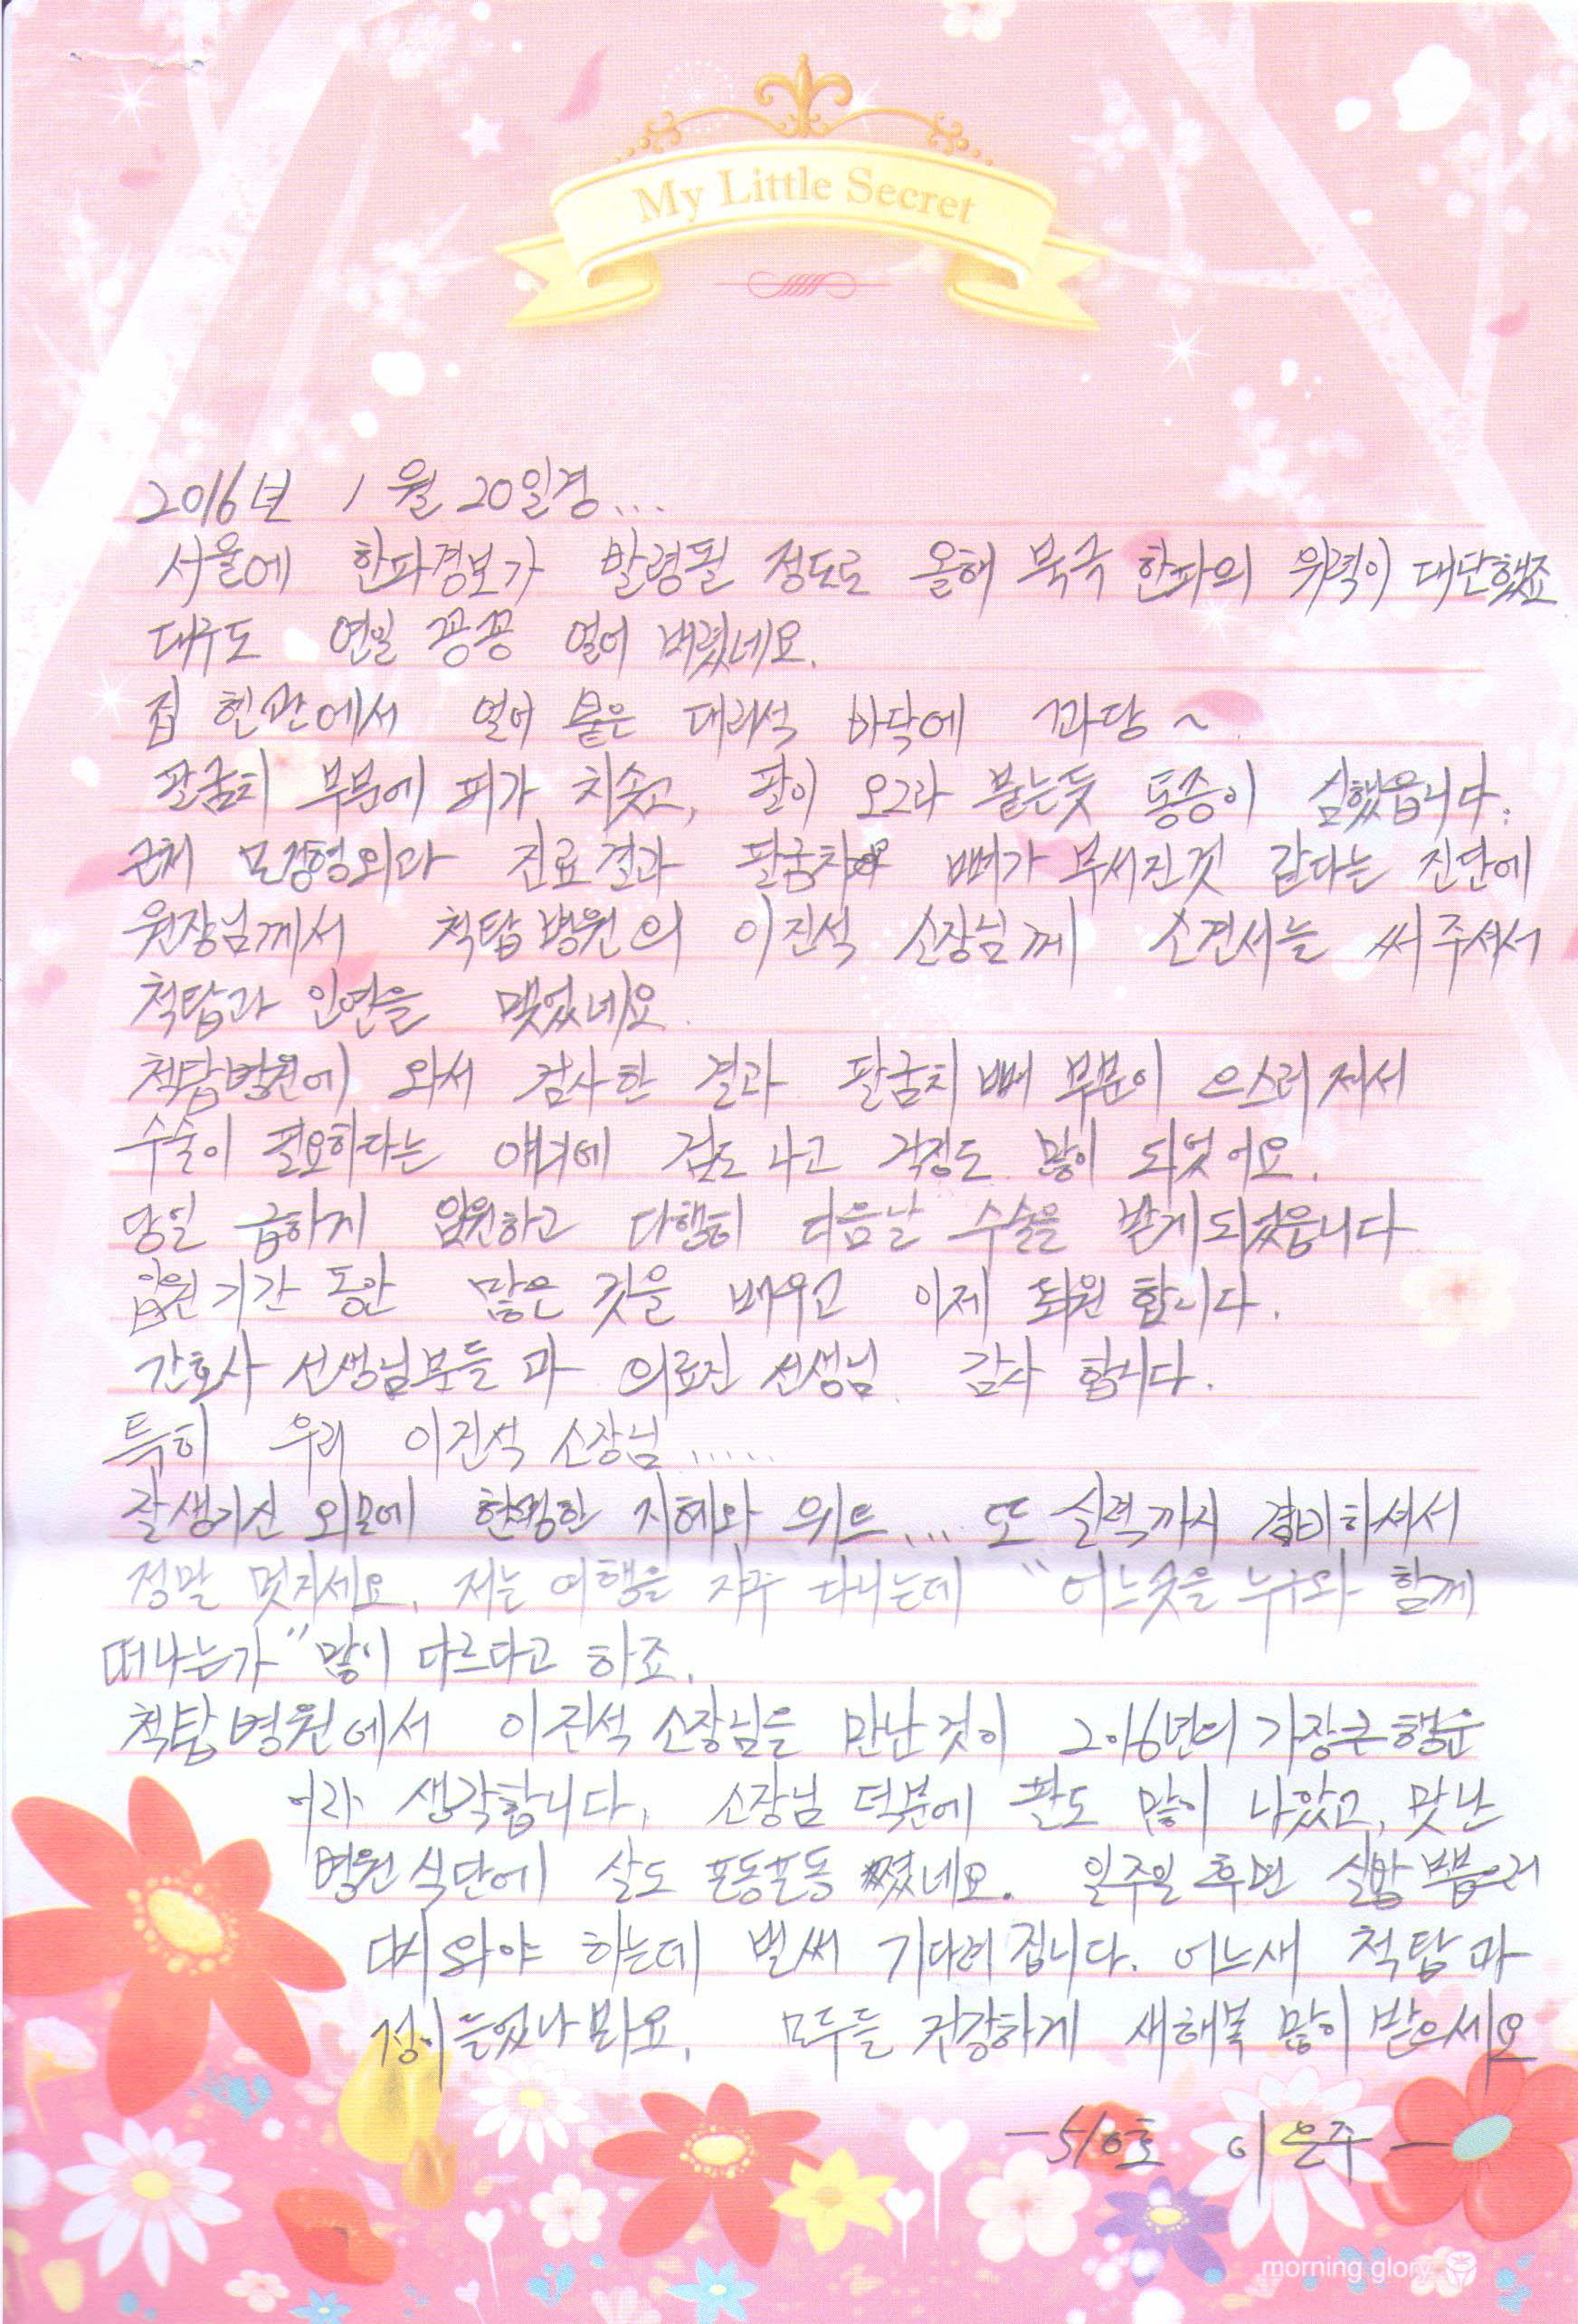 My Little Secret
2016년 1월 20일경...
서울에 한파경보가 발령될 정도로 올해 북극 한파의 위력이 대단했죠
대구도 연일 꽁꽁 얼어 버렸네요.
집 현관에서 얼어 붙은 대리석 바닥에 꽈당~
팔굼치 부문에 피가 치솟고, 팔이 오그라 붙는듯 통증이 심했읍니다.
근처 모정형외과 진료결과 팔굼치 뼈가 부서진것 같다는 진단에
원장님께서 척탑병원의 이진석 소장님께 소견서를 써주셔서
척탑과 인연을 맺었네요.
척탑병원에 와서 검사한 결과 팔굼치 뼈 부문이 으스러져서
수술이 필요하다는 얘기에 겁도 나고 걱정도 많이 되었어요.
당일 급하게 입원하고 다행히 다음날 수술을 받게되었읍니다
입원기간 동안 많은 것을 배우고 이제 퇴원 합니다.
간호사 선생님분들과 의료진 선생님 감사 합니다.
특히 우리 이진석 소장님.....
잘생기신 외모에 현명한 지혜와 위트... 또 실력까지 겸비하셔서
정말 멋지세요. 저는 여행을 자주 다니는데 "어느곳을 누구와 함께
떠나는가" 많이 다르다고 하죠.
척탑병원에서 이진석 소장님을 만난것이 2016년의 가장큰 행운
이라 생각합니다. 소장님 덕분에 팔도 많이 나았고, 맛난
병원식단에 살도 포동포동 쪘네요. 일주일 후면 실밥 뽑으러
와야 하는데 벌써 기다려집니다. 어느새 척탑과
정이 들었나 봐요. 모두들 건강하게 새해복 많이 받으세요
-510호 이은주-
morning glory